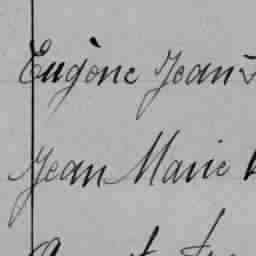 Eugène Jean
Jean Marie